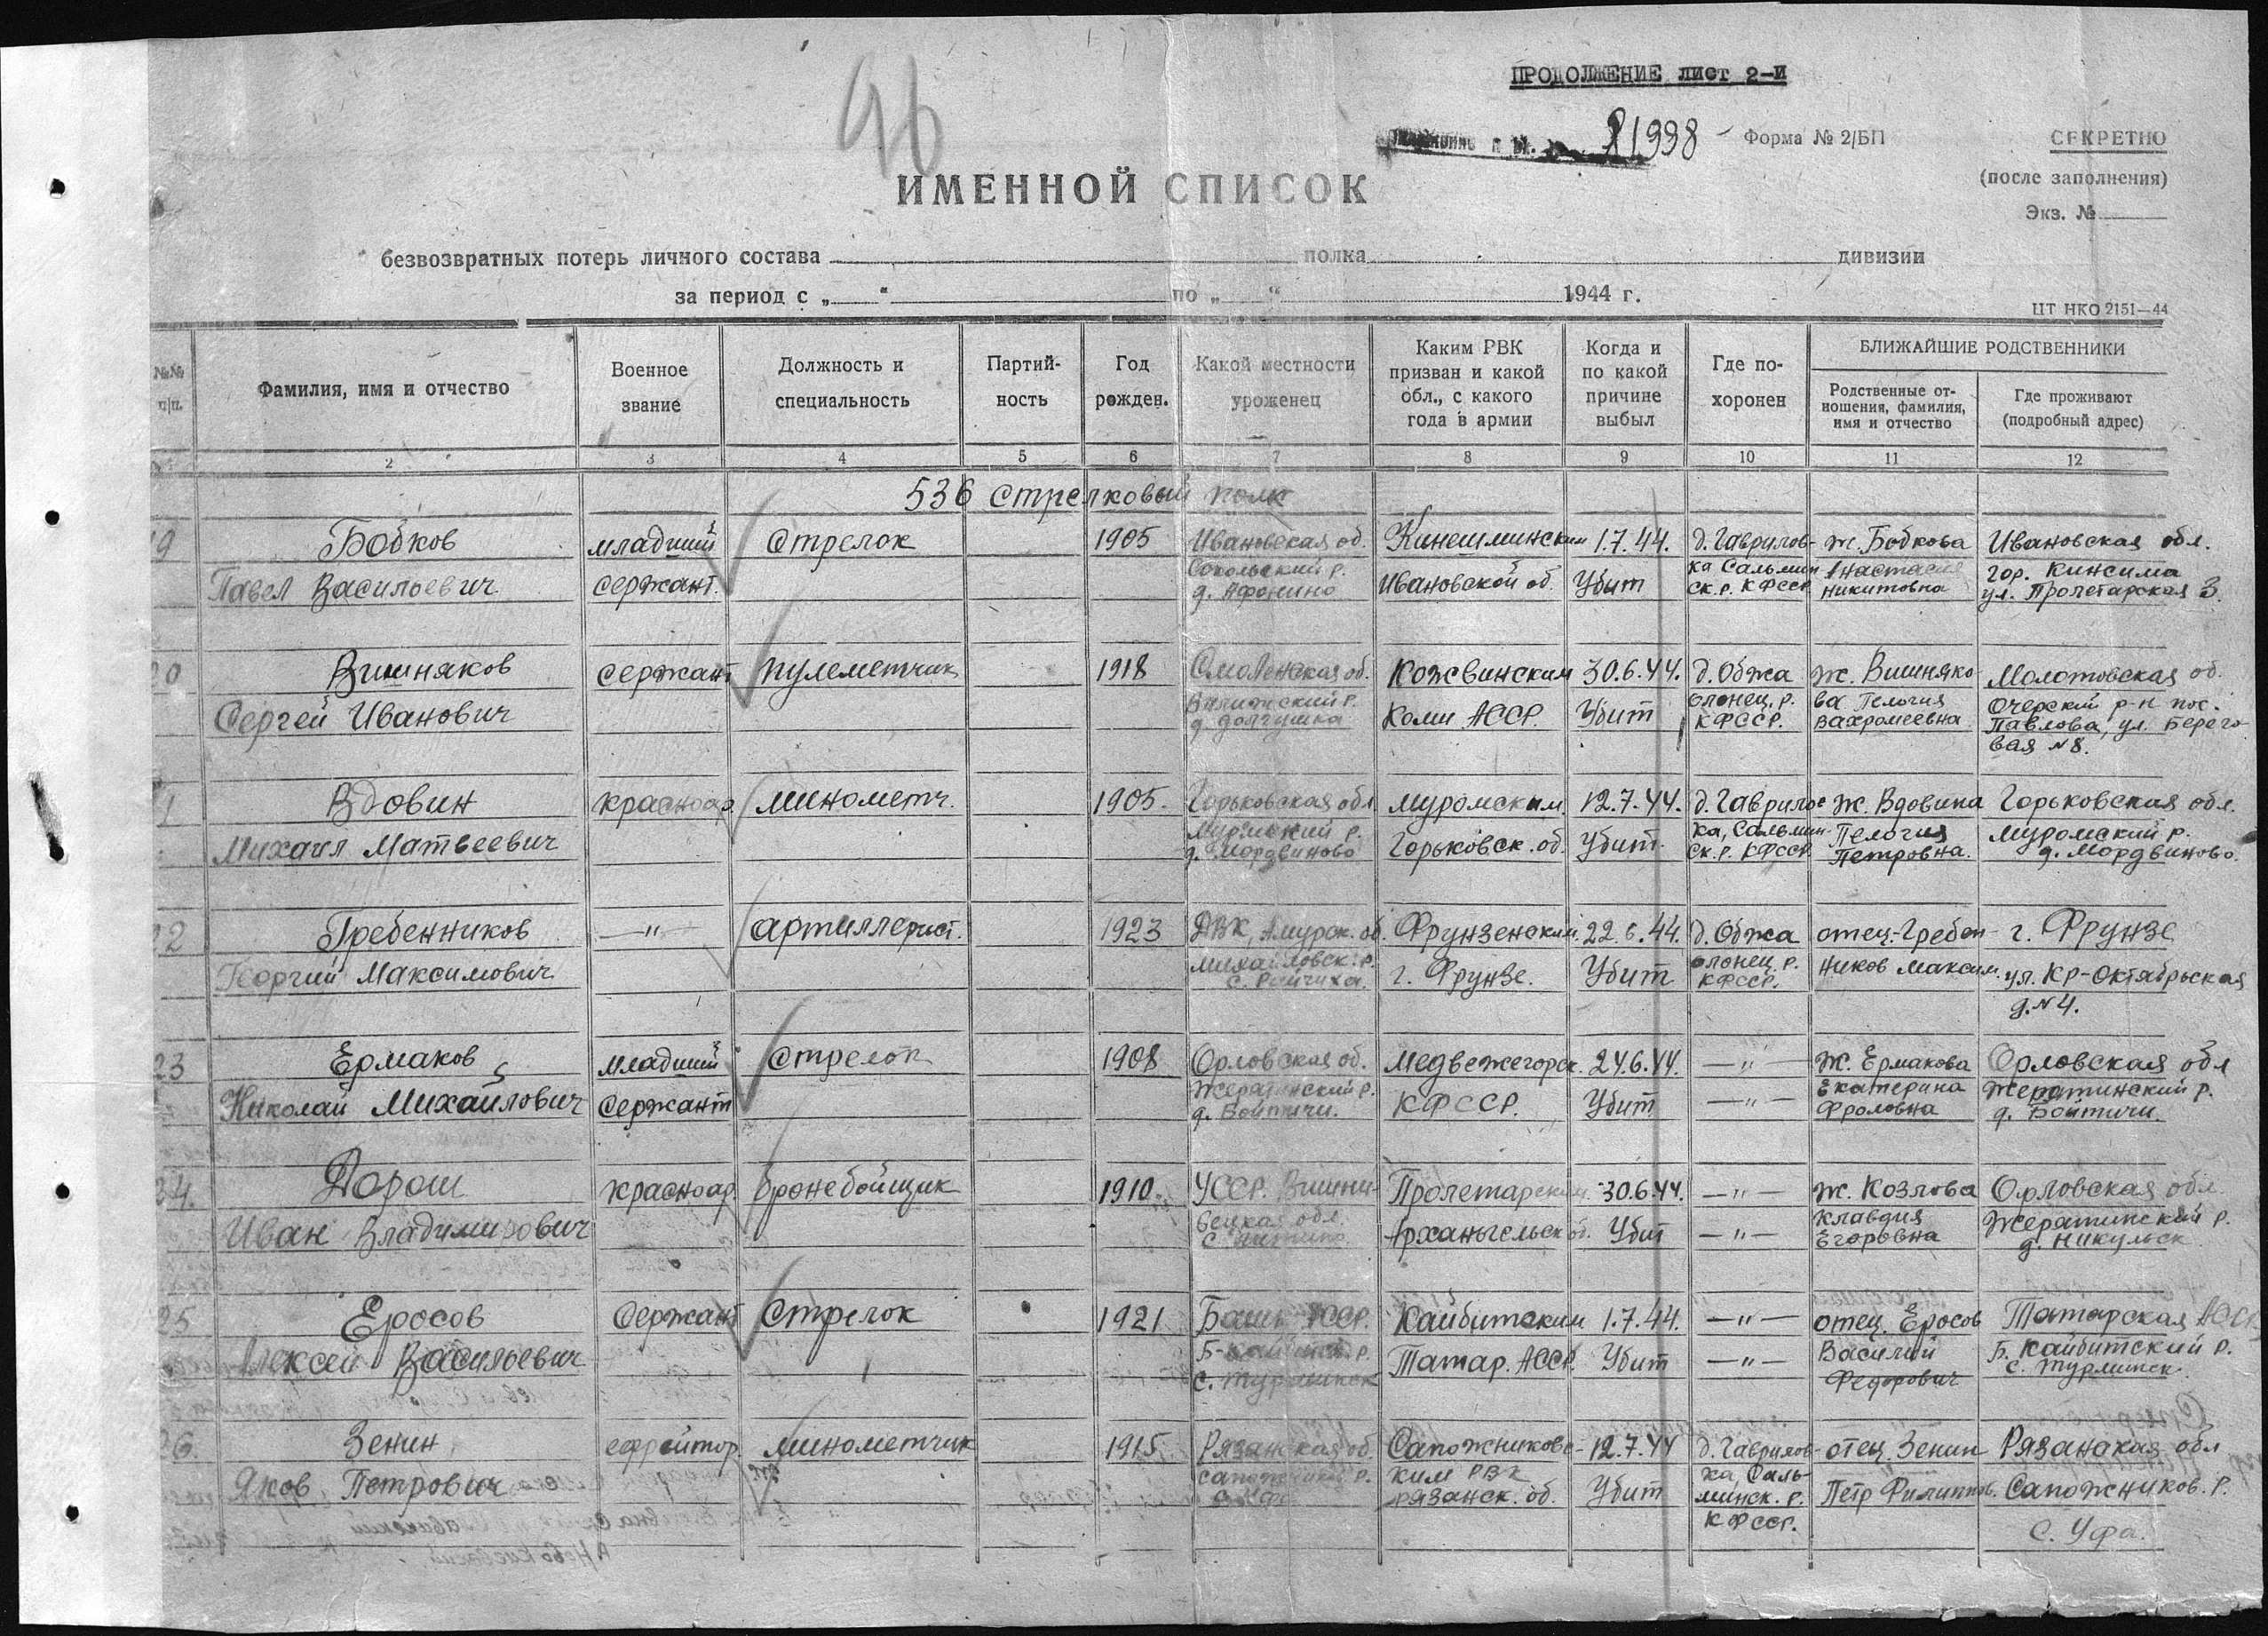 96
ПРОДОЛЖЕНИЕ лист 2-й
21998 Форма № 2/БП
СЕКРЕТНО
(после заполнения)
Экз. №
ИМЕННОЙ СПИСОК
безвозвратных потерь личного состава полка дивизии
за период с „ “ по „ “ 1944 г.
ЦТ НКО 2151—44
№№ п/п.
Фамилия, имя и отчество
Военное звание
Должность и специальность
Партий-ность
Год рожден.
Какой местности уроженец
Каким РВК призван и какой обл., с какого года в армии
Когда и по какой причине выбыл
Где по-хоронен
БЛИЖАЙШИЕ РОДСТВЕННИКИ
Родственные от-ношения, фамилия, имя и отчество
Где проживают (подробный адрес)
2 3 4 5 6 7 8 9 10 11 12
536 стрелковый полк
19 Бобков младший стрелок 1905 Ивановская об. Кинешминским 1.7.44. д. Гаврилов- ж. Бобкова Ивановская обл.
Павел Васильевич сержант. Сокольский р. д. Афонино Ивановской об. Убит ка Сальмин ск. р. КФССР Анастасия Никитовна гор. Кинсима ул. Пролетарская 3.
20 Вишняков сержант пулеметчик 1918 Смоленская об. Кожвинским 30.6.44. д. Обжа ж. Вишняко- Молотовская об.
Сергей Иванович Велижский р. д. Долгушка Коми АССР. Убит олонец. р. КФССР. ва Пелогия Вахромеевна Очерский р-н пос. Павлова, ул. Берего
вая №8.
21 Вдовин красноар. минометч. 1905. Горьковская обл. Муромским 12.7.44. д. Гаврилов ж. Вдовина Горьковская обл.
Михаил Матвеевич Муромский р. д. Мордвиново Горьковск. об. Убит. ка, Сальмин- ск. р. КФССР. Пелогия Петровна. Муромский р. д. Мордвиново.
22 Гребенников —"— артиллерист. 1923 ДВК, Амурск. об. Фрунзенским 22.6.44. д. Обжа отец-Гребен- г. Фрунзе
Георгий Максимович Михайловск. р. с. Райчиха. г. Фрунзе. Убит олонец. р. КФССР. ников Максим. ул. Кр-Октябрьская
д. №4.
23 Ермаков младший стрелок 1908 Орловская об. Медвежегорск. 24.6.44. —"— ж. Ермакова Орловская обл
Николай Михайлович сержант Жерятинский р. д. Войтичи. КФССР. Убит —"— Екатерина Фроловна Жерятинский р. д. Войтичи.
24. Дорош красноар. бронебойщик 1910. УССР. Винни- Пролетарским 30.6.44. —"— ж. Козлова Орловская обл.
Иван Владимирович цкая обл. Архангельск об. Убит —"— Клавдия Егоровна Жерятинский р. д. Никульск
25 Еросов Сержант Стрелок 1921 Баш. АССР. Кайбитским 1.7.44. —"— отец. Еросов Татарская АССР
Алексей Васильевич Б-Кайбитск. р. с. Турминск Татар. АССР. Убит —"— Василий Федорович Б. Кайбитский р. с. Турминск.
26. Зенин ефрейтор минометчик 1915 Рязанская об. Сапожниковс- 12.7.44 д. Гаврилов- отец. Зенин Рязанская обл
Яков Петрович Сапожник. р. с. Уфа ким РВК Рязанск. об. Убит ка, Саль-минск. р. КФССР. Петр Филиппов. Сапожников. р.
с. Уфа.